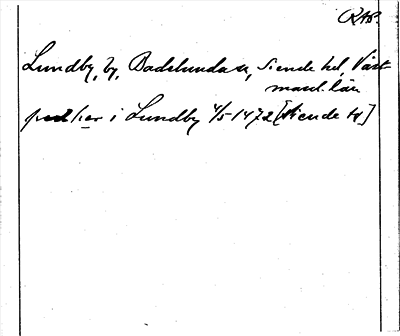 RAP.
Lundby, by, Badelunda sn, Siende hd, Väst
manl. län
i Lundby 4/5 1472 [Siende hd]